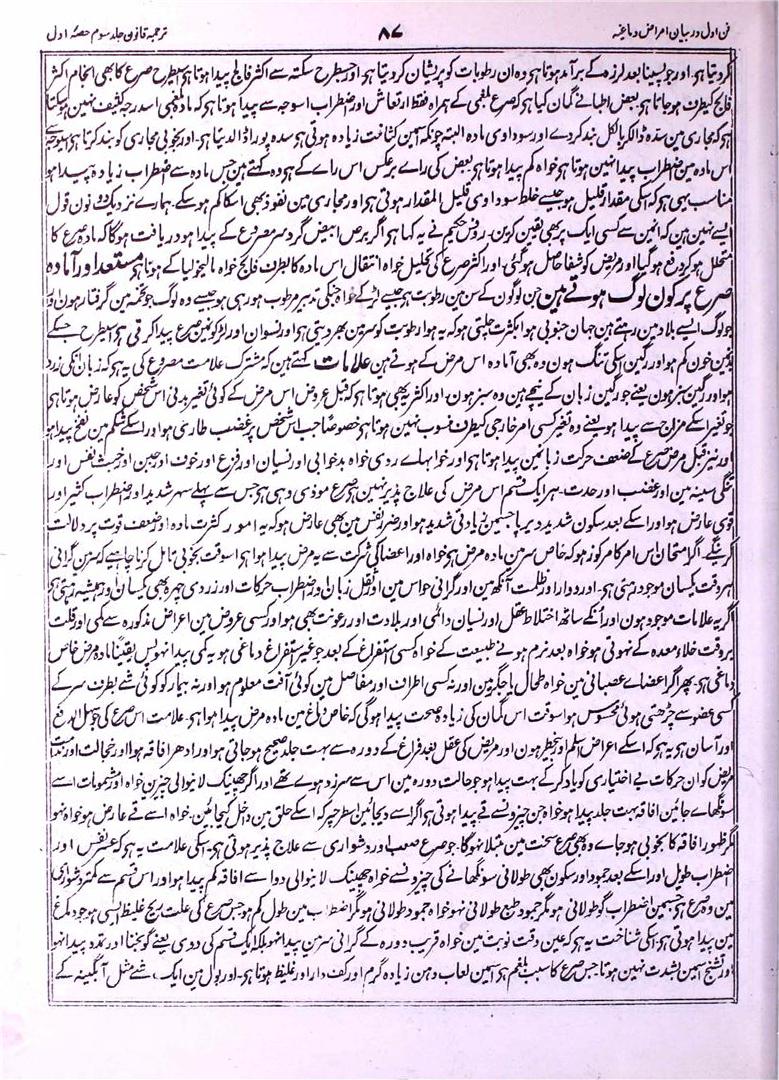 فن اول در بیان امراض دماغیہ ۸۷ ترجمہ قانون جلد سوم حصۂ اول
کر دیتا ہو۔ اور جو پسینا بعد لرزہ کے برآمد ہوتا ہو وہ ان رطوبات کو پریشان کر دیتا ہو۔ اور جسطرح سکتہ سے اکثر فالج پیدا ہوتا ہو اسیطرح صرع کا بھی انجام اکثر
فالج کیطرف ہو جاتا ہو بعض اطبا نے گمان کیا ہو کہ صرع بلغمی کے ہمراہ فقط ارتعاش اور اضطراب اسوجہ سے پیدا ہوتا ہو کہ مادۂ بلغمی اسدرجہ کثیف نہین ہو سکتا
ہو کہ مجاری مین سدہ ڈالکر بالکل بند کر دے اور سوداوی مادہ البتہ چونکہ اسمین کثافت زیادہ ہوتی ہو سدہ پورا ڈالدیتا ہو۔ اور بخوبی مجاری کو بند کرتا ہو اسیوجہ سے
اس مادہ مین اضطراب پیدا نہین ہوتا ہو خواہ کم پیدا ہوتا ہو بعض کی راے برعکس اس راے کے ہو وہ کہتے ہین جس مادہ سے اضطراب زیادہ پیدا ہو
مناسب یہی ہو کہ اسکی مقدار قلیل ہو جیسے خلط سوداوی قلیل المقدار ہوتی ہو اور مجاری مین نفوذ بھی اسکا کم ہو سکے۔ ہمارے نزدیک دونون قول
ایسے نہین ہین کہ انمین سے کسی ایک پر بھی یقین کرین۔ روفس حکیم نے یہ کہا ہو اگر برص ابیض گرد سر مصروع کے پیدا ہو دریافت ہوگا کہ مادہ صرع کا
متحلل ہو کر دفع ہو گیا اور مریض کو شفا حاصل ہو گئی۔ اور اکثر صرع کی تحلیل خواہ انتقال اس مادہ کا بطرف فالج خواہ مالیخولیا کے ہوتا ہو مستعد اور آمادہ
صرع پر کون لوگ ہوتے ہین جن لوگون کے سن مین رطوبت ہو جیسے لڑکے خواہ جنکی تدبیر مرطوب ہو رہی ہو جیسے وہ لوگ جو تخمہ مین گرفتار ہون اور
جو لوگ ایسے بلاد مین رہتے ہین جہان جنوبی ہوا بکثرت چلتی ہو کہ یہ ہوا رطوبت کو سر مین بھر دیتی ہو اور نسوان اور لڑکونمین صرع پیدا کرتی ہو اسیطرح جسکے
بدن مین خون کم ہو اور رگین اسکی تنگ ہون وہ بھی آمادہ اس مرض کے ہوتے ہین علامات کہتے ہین کہ مشترک علامت مصروع کی یہ ہو کہ زبان انکی زرد
ہو اور رگین سبز ہون یعنے جو رگین زبان کے نیچے ہین وہ سبز ہون۔ اور اکثر یہ بھی ہوتا ہو کہ قبل عروض اس مرض کے کوئی تغیر بدنی اس شخص کو عارض ہوتا ہو
جو تغیر اسکے مزاج سے پیدا ہو یعنے وہ تغیر کسی امر خارجی کیطرف منسوب نہین ہوتا ہو خصوصاً جب اس شخص پر غضب طاری ہو اور اسکے شکم مین نفخ پیدا ہو
اور نیز قبل مرض صرع کے ضعف حرکت زبانمین پیدا ہوتا ہو اور خوابہاے ردی خواہ بدخوابی اور نسیان اور فزع اور خوف اور جبن اور خبث نفس اور
تنگی سینہ مین اور غضب اور حدت۔ ہر ایک قسم اس مرض کی علاج پذیر نہین ہو صرع موذی وہی ہو جس سے پہلے سہر شدید اور اضطراب کثیر اور
قوی عارض ہو اور اسکے بعد سکون شدید دیر پا جسمین زیادتی شدید ہو اور ضرر نفس مین بھی عارض ہو کہ یہ امور کثرت مادہ اور ضعف قوت پر دلالت
کرینگے۔ اگر امتحان اس امر کا مرکوز ہو کہ خاص سر مین مادہ مرض ہو خواہ اور اعضا کی شرکت سے یہ مرض پیدا ہوا ہو اسوقت بخوبی تامل کرنا چاہیے کہ سر مین گرانی
ہر وقت یکسان موجود رہتی ہو۔ اور دوار اور ظلمت آنکھ مین اور گرانی حواس مین اور ثقل زبان اور اضطراب حرکات اور زردی چہرہ بھی یکسان اور ہمیشہ رہتی ہو
اگر یہ علامات موجود ہون اور انکے ساتھ اختلاط عقل اور نسیان دائمی اور بلادت اور رعونت بھی ہو اور کسی عروض مین اعراض مذکورہ سے کمی اور قلت
بروقت خلاء معدہ کے نہوتی ہو خواہ بعد نرم ہونے طبیعت کے خواہ کسی استفراغ کے بعد جو غیر استفراغ دماغی ہو یہ کمی پیدا نہو پس یقیناً مادہ مرض خاص
دماغی ہو۔ پھر اگر اعضاے عصبانی مین خواہ طحال یا جگر مین اور نہ کسی اطراف اور مفاصل مین کوئی آفت معلوم ہو اور نہ بیمار کو کوئی شے بطرف سر کے
کسی عضو سے چڑھتی ہوئی محسوس ہو اسوقت اس گمان کی زیادہ صحت پیدا ہوگی کہ خاص دماغ مین مادہ مرض پیدا ہوا ہو۔ علامت اس صرع کی جو سہل الدفع
اور آسان ہو یہ ہو کہ اسکے اعراض اسلم اور بیخطر ہون اور مریض کی عقل بعد فراغ کے دورہ سے بہت جلد صحیح ہو جاتی ہو اور ادھر افاقہ ہوا اور خجالت اور ندامت
مریض کو ان حرکات بے اختیاری کو یاد کر کے بہت پیدا ہو جو حالت دورہ مین اس سے سرزد ہوے تھے اور اگر چھینک لانیوالی چیزین خواہ اور مشمومات اسے
سونگھاے جائین افاقہ بہت جلد پیدا ہو خواہ جن چیزونسے قے پیدا ہوتی ہو اگر اسے دیجائین اسطرحپر کہ اسکے حلق مین داخل کیجائین۔ خواہ اسے قے عارض ہو خواہ نہو
مگر ظہور افاقہ کا بخوبی ہو جاے وہ بھی صرع سخت مین مبتلا نہوگا۔ جو صرع صعب اور دشواری سے علاج پذیر ہوتی ہو۔ اسکی علامت یہ ہو کہ عسر نفس اور
اضطراب طویل اور اسکے بعد جمود اور سکون بھی طولانی سونگھانے کی چیزونسے خواہ چھینک لانیوالی دوا سے افاقہ کم پیدا ہو اور اس قسم سے کمتر دشواری
مین وہ صرع ہو جسمین اضطراب گو طولانی ہو مگر جمود طبع طولانی نہو خواہ جمود طولانی ہو مگر اضطراب مین طول کم ہو جس صرع کی علت ریح غلیظ ایسی ہو جو دماغ
مین پیدا ہوتی ہو اسکی شناخت یہ ہو کہ عین وقت نوبت مین خواہ قریب دورہ کے گرانی سر مین پیدا نہو بلکہ ایک قسم کی دوی یعنے گونجنا اور تمدد پیدا نہو
اور تشنج اسمین بشدت نہین ہوتا جس صرع کا سبب بلغم ہو اسمین لعاب دہن زیادہ گرم اور کف دار اور غلیظ ہوتا ہو۔ اور بول مین ایک شے مثل آبگینہ کے